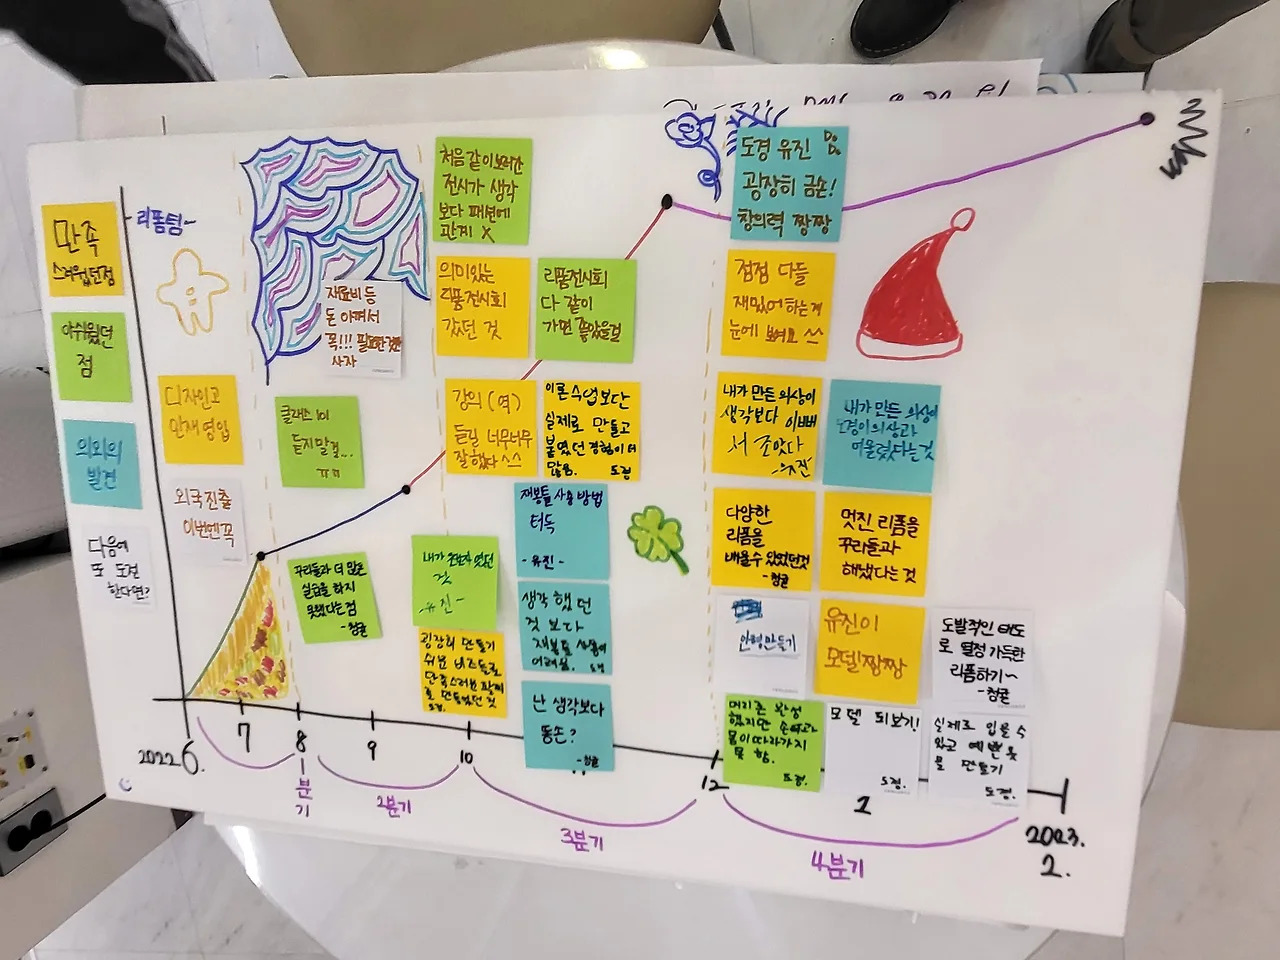 만족
스러웠던점
아쉬웠던
점
의외의
발견
다음에
또 도전
한다면?
리폼팀~
디자인고
인재영입
외국진출
이번엔꼭
재료비 등
돈 아껴서
꼭!!! 필요한것만
사자
클래스 101
듣지말걸...
ㅠㅠ
꾸리들과 더 많은
실습을 하지
못했다는점
-청귤
처음 같이 보러간
전시가 생각
보다 패션에
관계 X
의미있는
리폼전시회
갔던 것
리폼전시회
다 같이
가면 좋았을걸
강의(역)
듣길 너무너무
잘했다^^
이론수업보단
실제로 만들고
붙였던 경험이 더
많음.
도경
내가
것
유진-
굉장히 만들기
쉬운 비즈들로
만족스러운
로 만들었던 것
도경.
재봉틀 사용 방법
터득
-유진-
생각 했던
것 보다
재봉틀 사용이
어려웠.
도경
난 생각보다
똥손?
-청귤
도경 유진
굉장히 금손!
창의력 짱짱
점점 다들
재밌어 하는게
눈에 보여요
내가 만든 의상이
생각보다 이뻐
서 좋았다
-유진
내가 만든 의상이
도경이의상과
어울렸다는것
다양한
리폼을
배울수 있었던것
-청귤
멋진 리폼을
꾸리들과
해냈다는 것
인형만들기
유진이
모델짱짱
도발적인 태도
로 열정 가득한
리폼하기~
-청귤
머리론 완성
했지만 손바느
몸이 따라가지
못 함.
도경.
모델 되보기!
도경.
실제로 입을수
있고 예쁜 옷
을 만들기
도경.
2022. 6.
7
8
9
10
12
1
2023.
2.
1분기
2분기
3분기
4분기